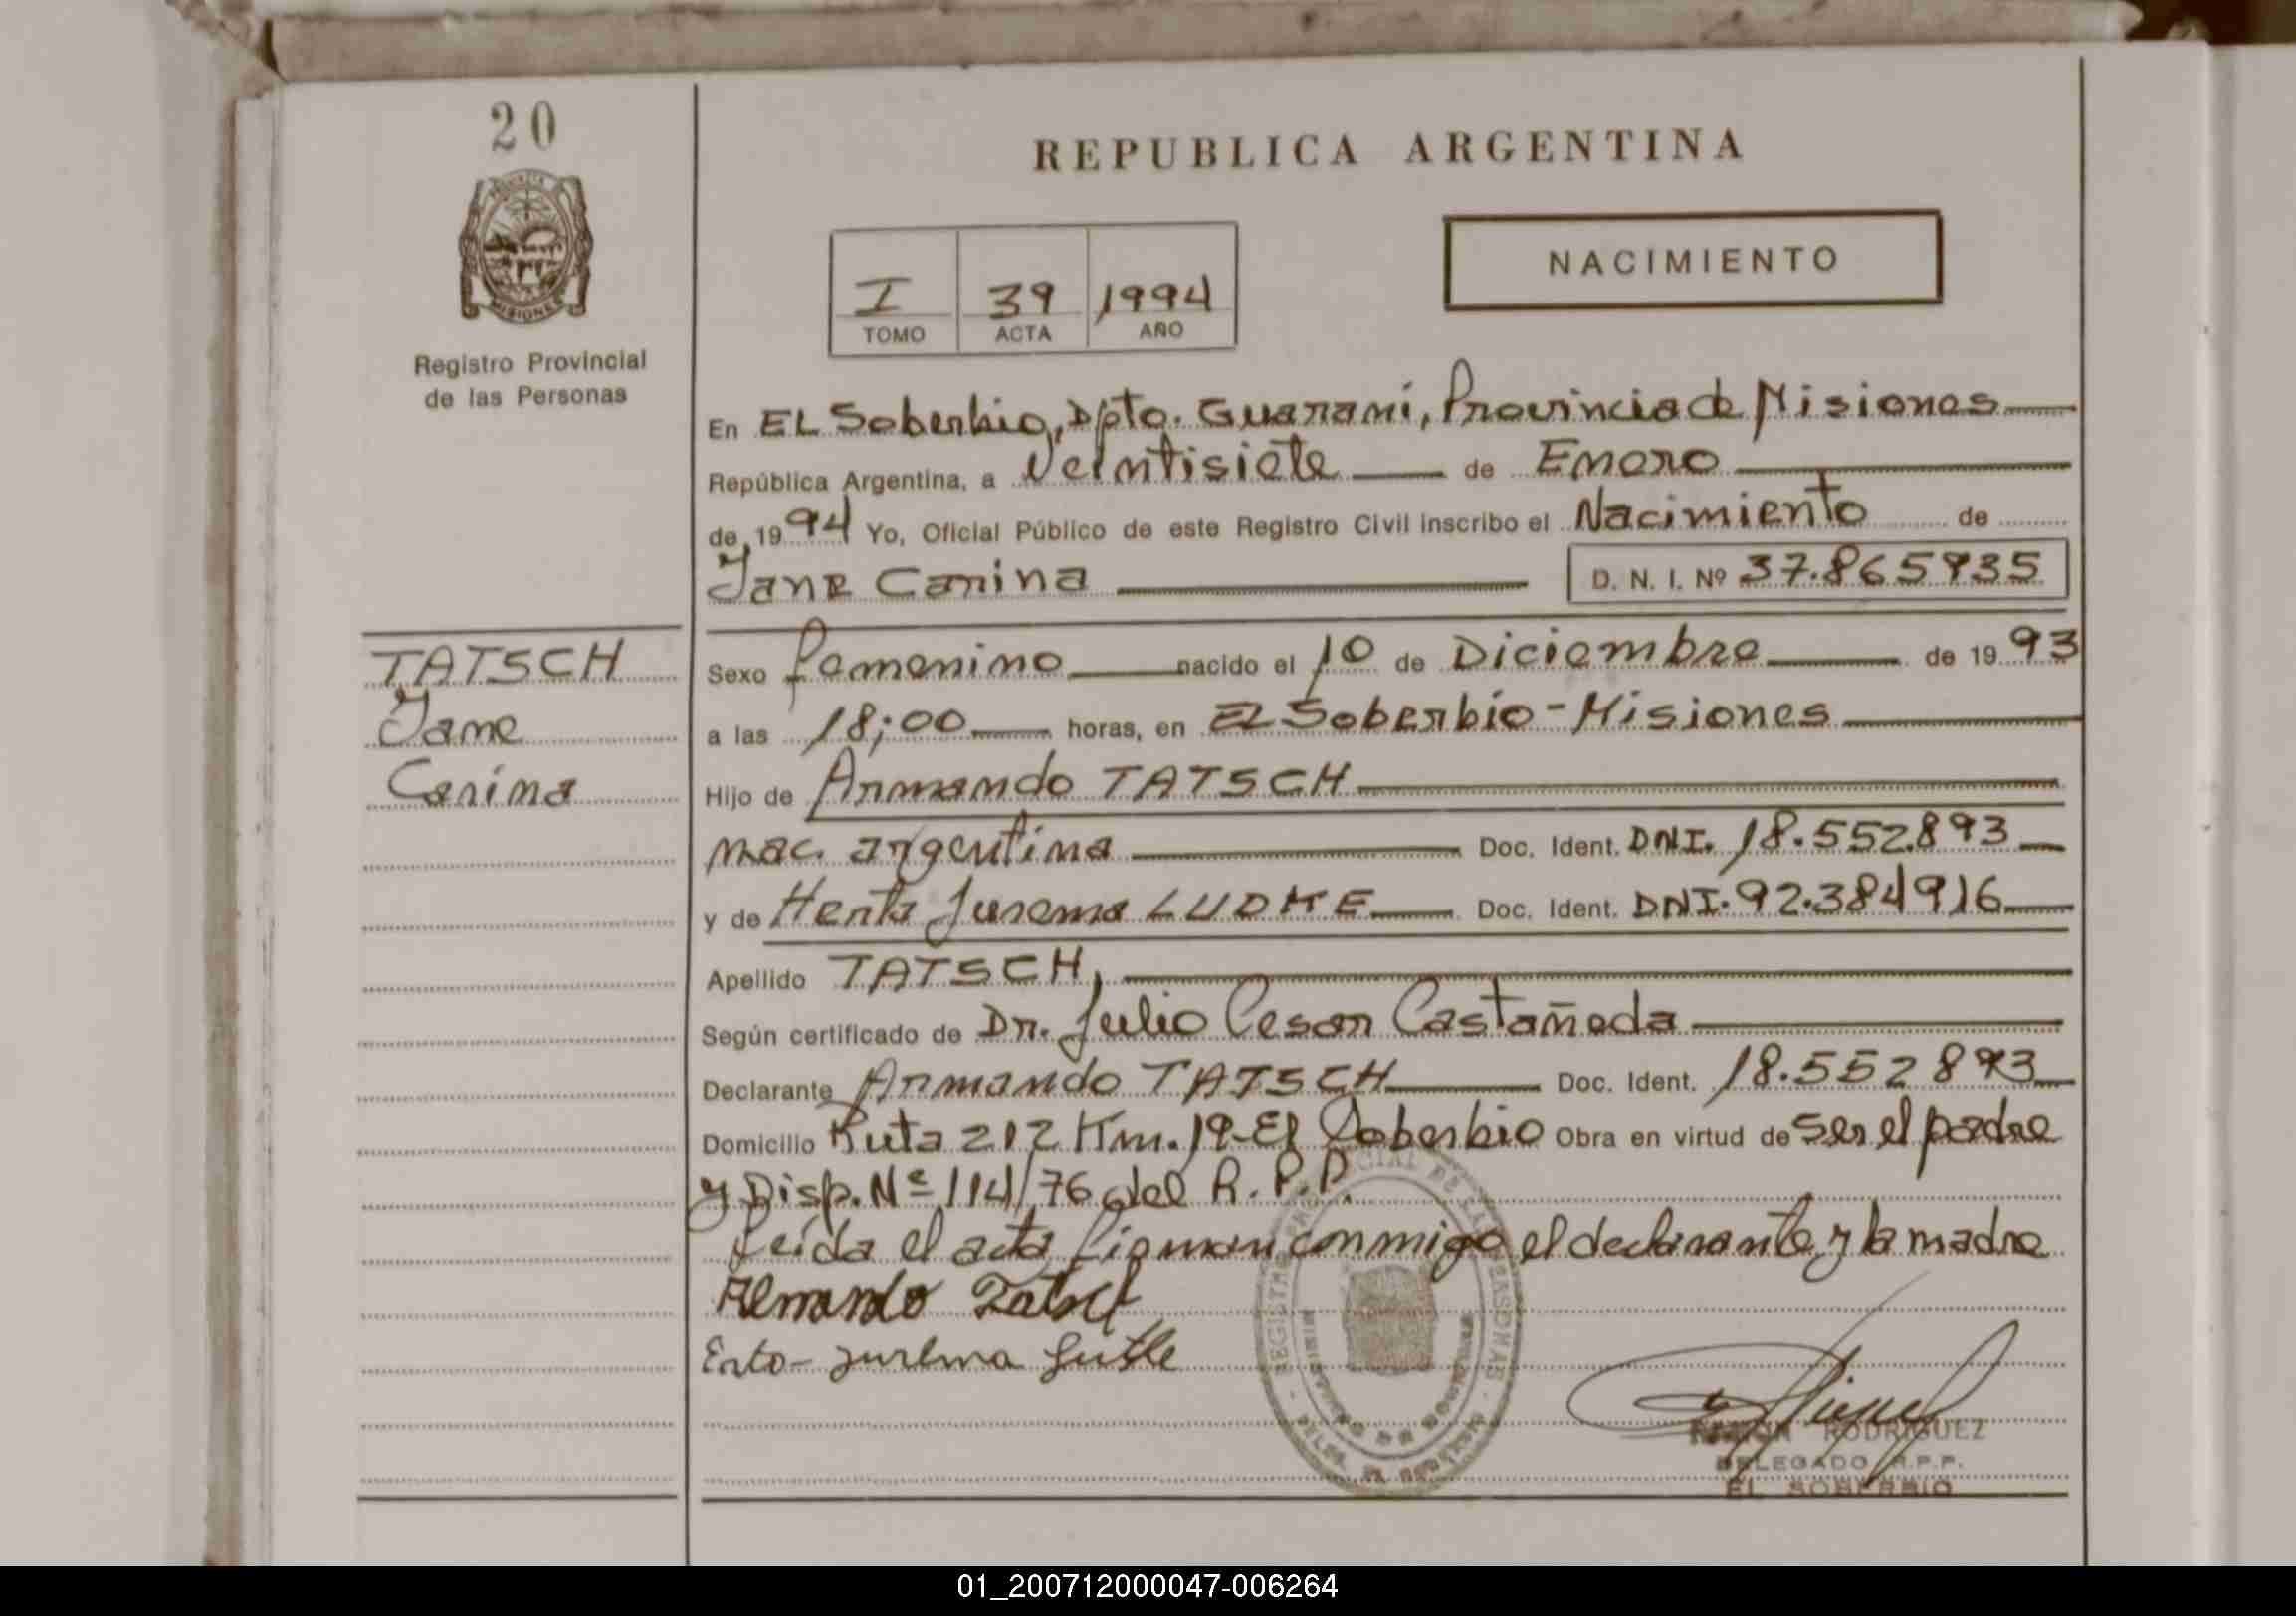 20
Registro Provincial
de las Personas
REPUBLICA ARGENTINA
I 39 1994
TOMO ACTA AÑO
NACIMIENTO
En EL Soberbio, Dpto. Guarani, Provincia de Misiones
República Argentina, a Veintisiete de Enero
de 1994 Yo, Oficial Público de este Registro Civil inscribo el Nacimiento de
Jane Carina D. N. I. Nº 37.865935
TATSCH
Jane
Carina
Sexo femenino nacido el 10 de Diciembre de 1993
a las 18;00 horas, en El Soberbio - Misiones
Hijo de Armando TATSCH
nac. argentina Doc. Ident. DNI. 18.552.893
y de Herta Jurema LUDKE Doc. Ident. DNI. 92.384916
Apellido TATSCH,
Según certificado de Dr. Julio Cesar Castañeda
Declarante Armando TATSCH Doc. Ident. 18.552893
Domicilio Ruta 212 Km. 19-El Soberbio Obra en virtud de ser el padre
y Disp. Nº 114/76 del R. P. P.
Leída el acta firman conmigo el declarante y la madre
Armando Tatsch
jurema
RAMON RODRIGUEZ
DELEGADO R.P.P.
EL SOBERBIO
01_200712000047-006264